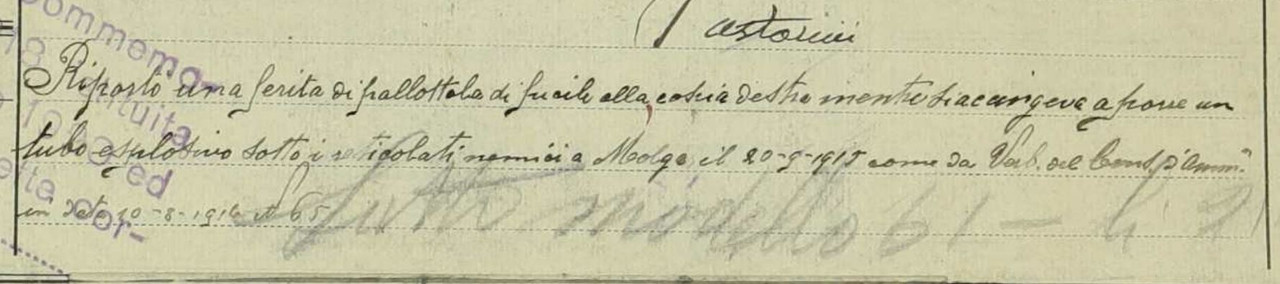 Pastorini
Riportò una ferita di pallottola di fucile alla coscia destra mentre si accingeva a porre un
tubo esplosivo sotto i reticolati nemici a Molga, il 20-9-1915 come da Verb. del Cons. d'Amm.
in data 10-8-1916 N 65
Fatto modello 61 -
Commemo-
ed
cor-